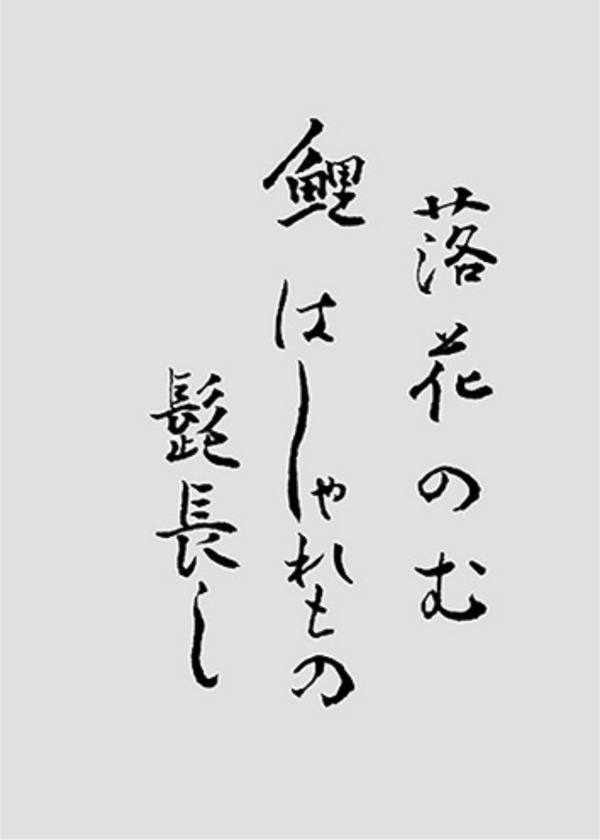 落花のむ
鯉はしゃれもの
髭長し